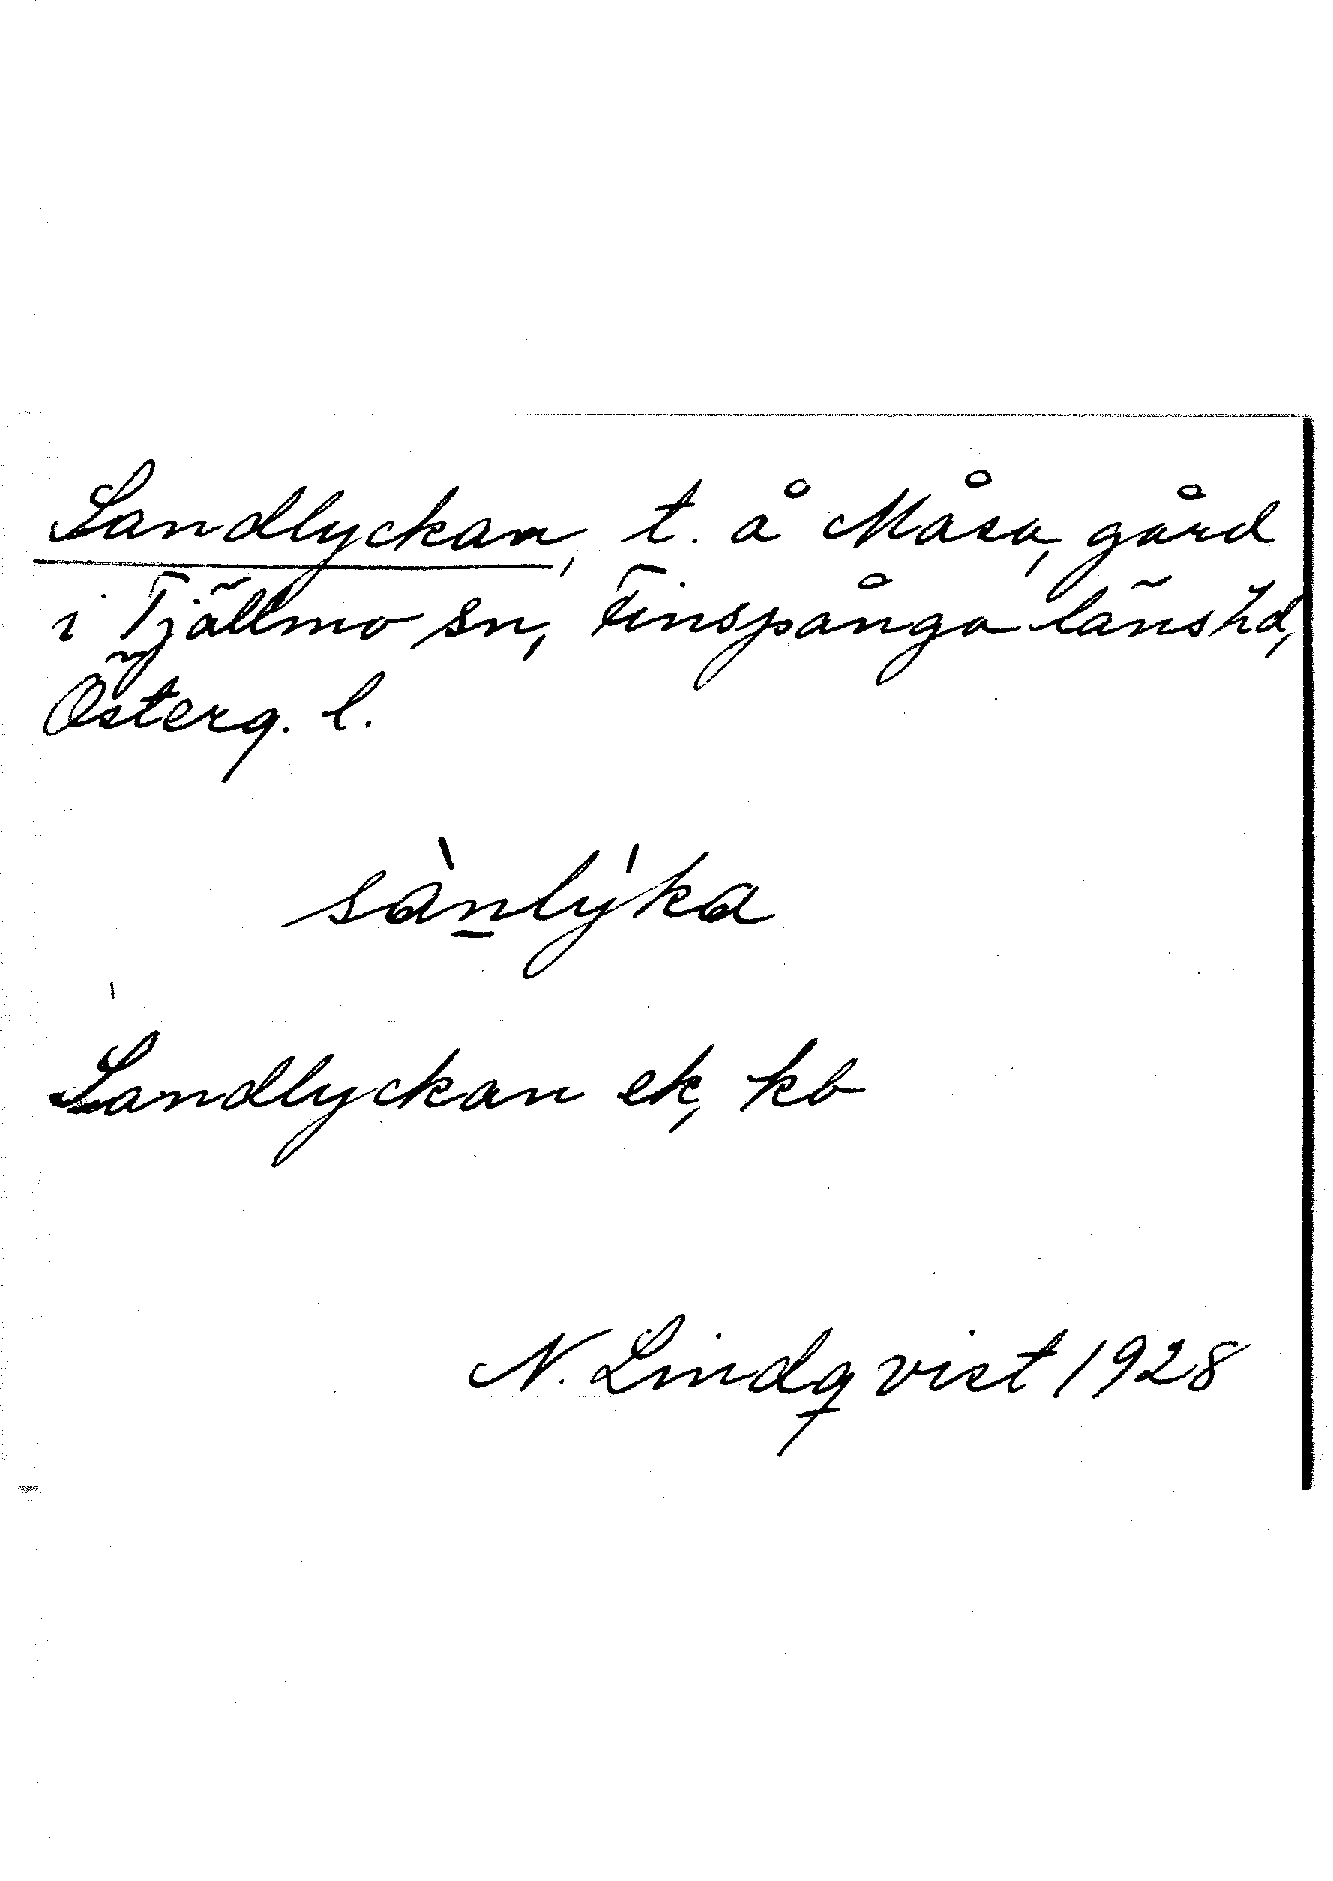 Sandlyckan, t. å Måsa, gård
i Tjällmo sn, Finspånga läns hd,
Österg. l.
sànlýka
Sandlyckan ek, kb
N. Lindqvist 1928